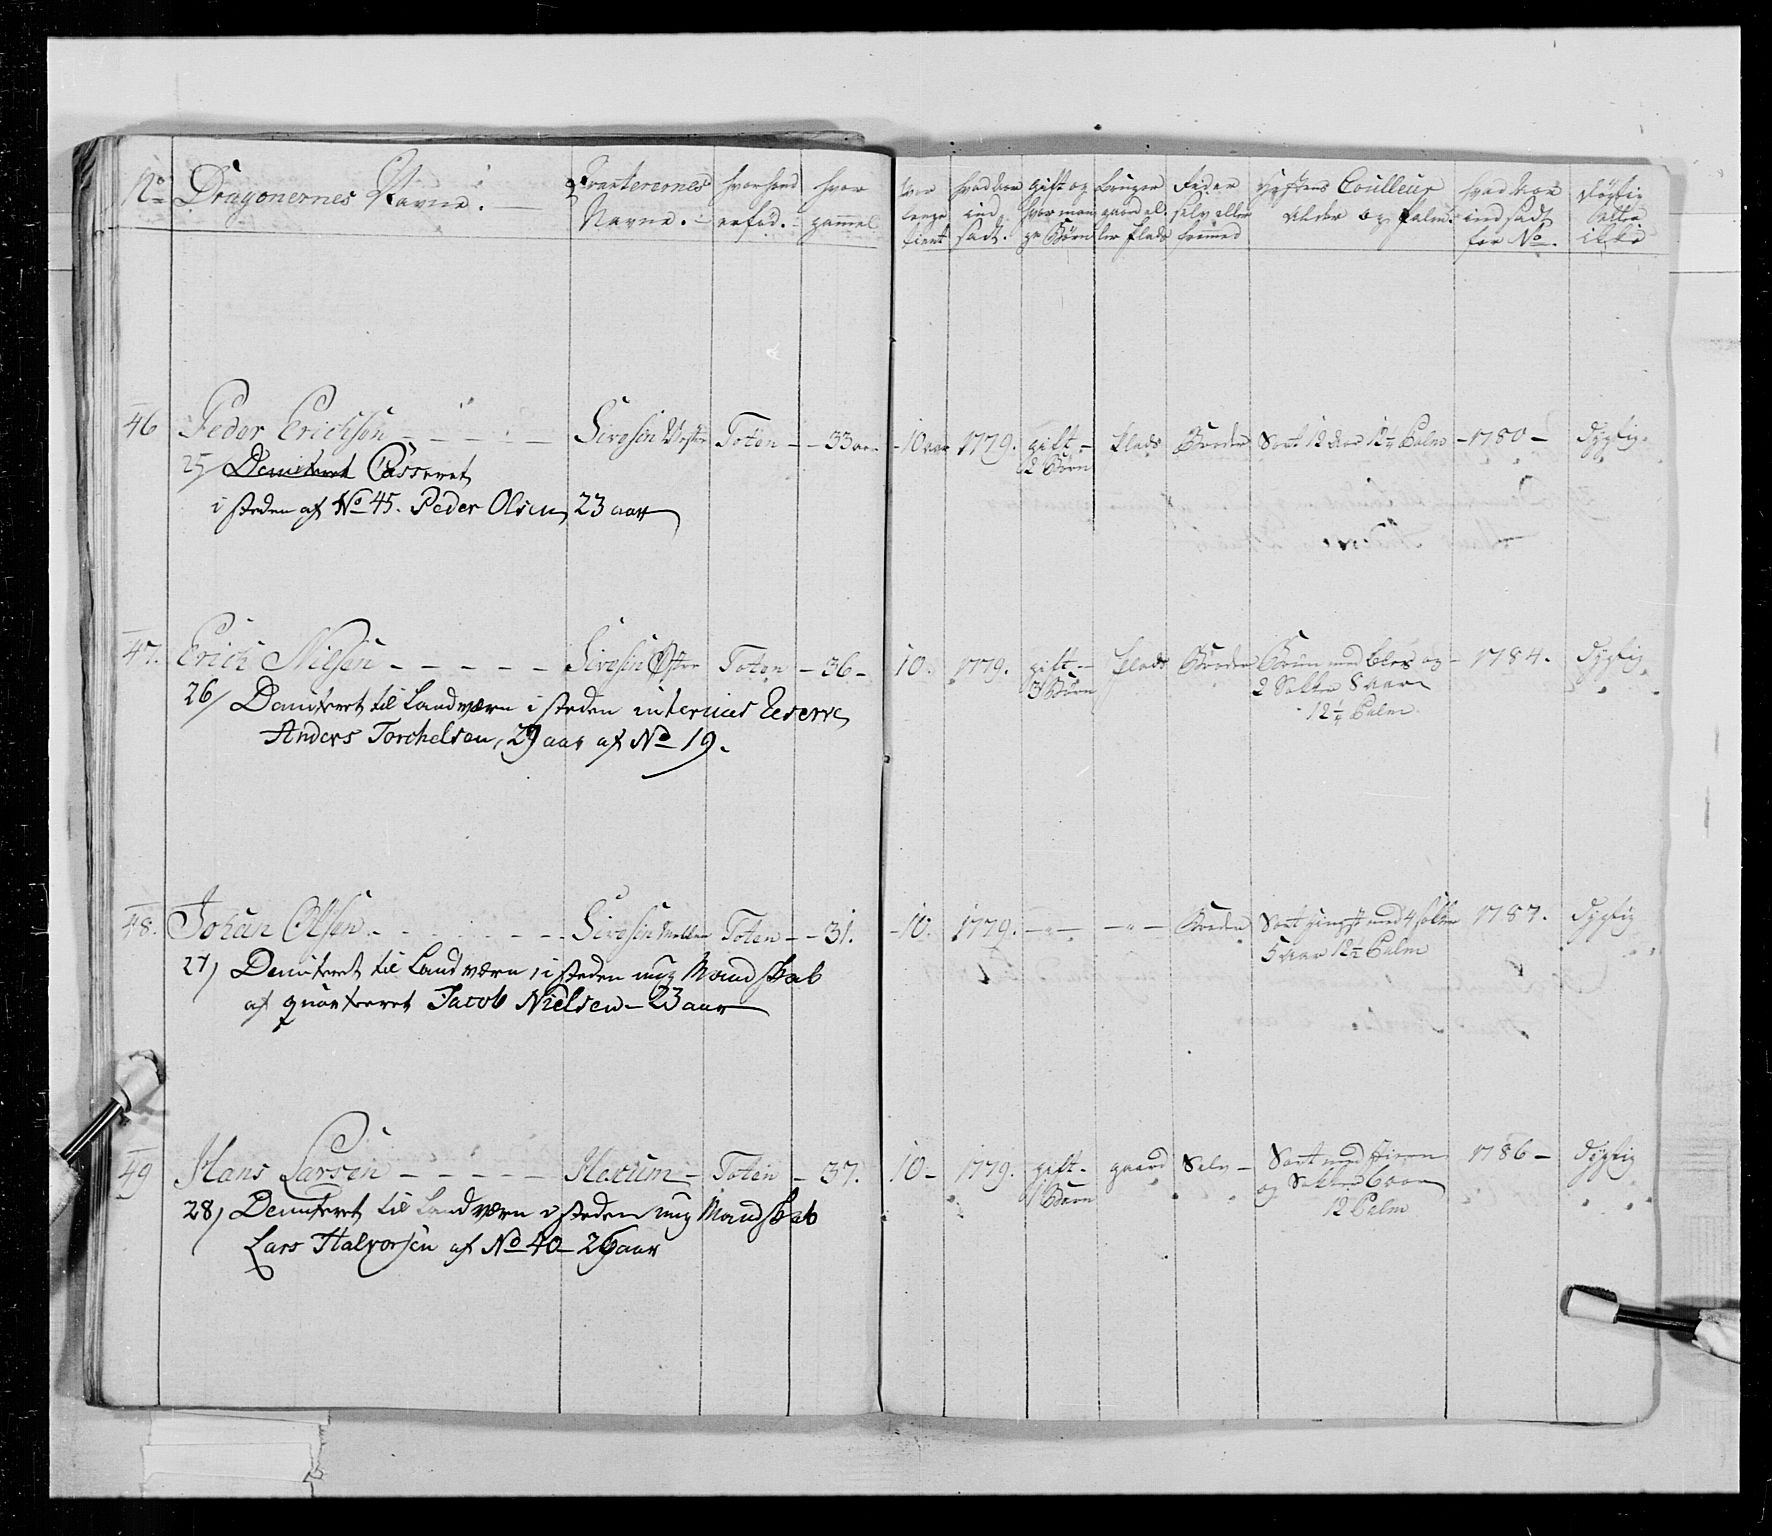 No Dragonernes Navne. Qvarterernes Navne. hvor hand er fød. hvor gammel hvor lenge tient hvad Aar ind sadt. gift og hvor mange Børn bruger gaard el ler Plads Rider selv eller fremmed Hestens Coulleur Alder og Palm. hvad Aar ind sadt for No. dygtig heller ikke
46 Peder Erichsen Sivesin Vestre Toten 33 aar 10 aar 1779. gift 2 Børn Plads Broder Sort 12 Aar 12½ Palm 1780 dygtig.
25/ Demiteret Casseret
i steden af No 45. Peder Olsen, 23 aar
47. Erich Nilsen Sivesin Østre Toten 36 10. 1779. gift 3 Børn Plads Broder Brun med bles og 1784. dygtig
2 Sokker 8 aar
12¼ Palm.
26/ Demiteret til Landværn i steden interims Reserve
Anders Torchelsen, 29 aar af No 19.
48. Johan Olsen Sivesin Mellem Toten 31. 10. 1779. Broder Sort Hingst med 4 sokker 1787. dygtig
5 aar 12½ Palm
27/ Demiteret til Landværn, i steden nyg Mandskab
af qvarteret Jacob Nielsen 23 aar
49 Hans Larsen Toten 37. 10 1779. gift 1 Barn gaard Selv Sort med Stiern 1786 dygtig
og Sokker 6 aar
12 Palm
28/ Demiteret til Landværn i steden nyg Mandskab
Lars Halvorsen af No 40 26 aar